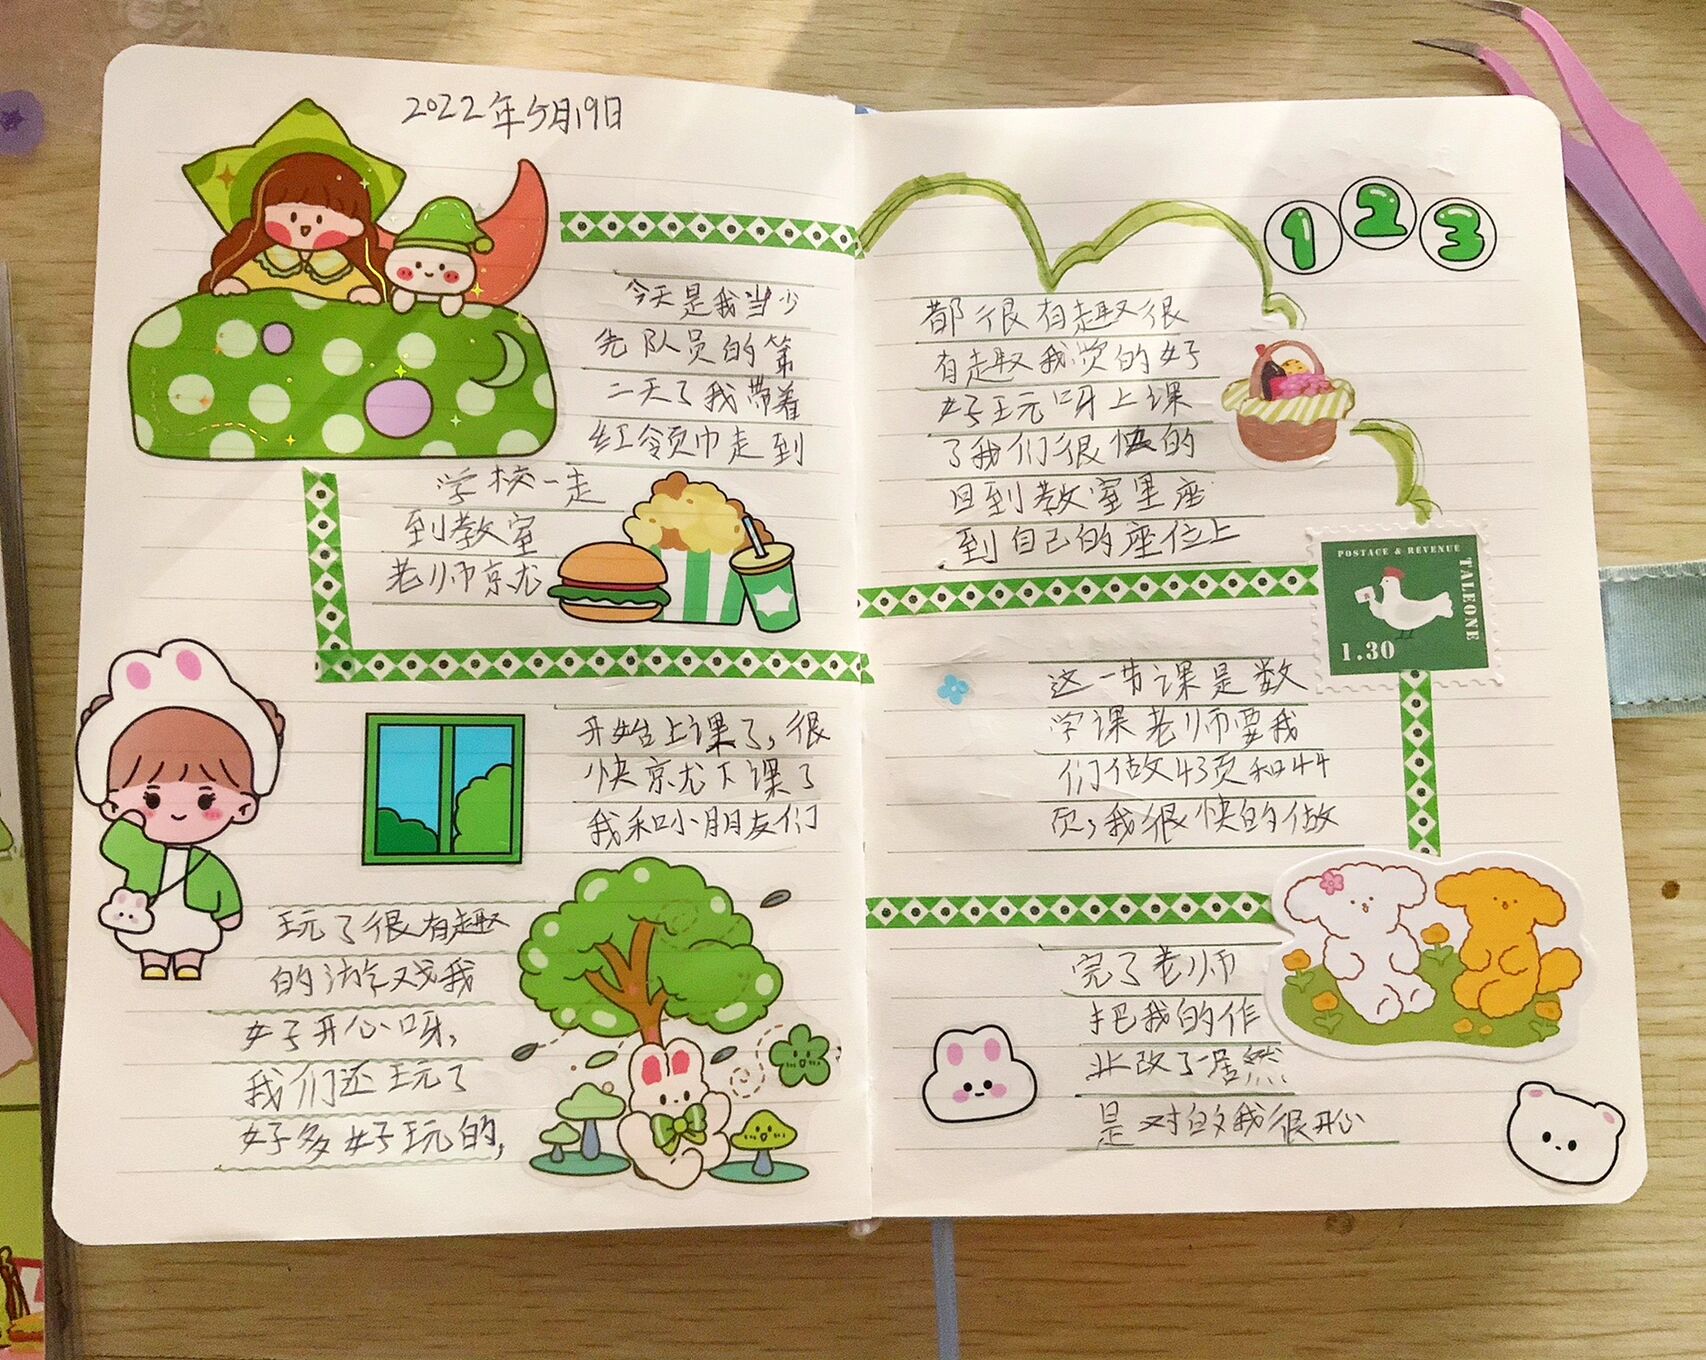 2022年5月19日
今天是我当少
先队员的第
二天了我带着
红领巾走到
学校一走
到教室
老师京尤
开始上课了,很
快京尤下课了
我和小朋友们
玩了很有趣
的游戏我
好开心呀,
我们还玩了
好多好玩的,
1 2 3
都很有趣很
有趣我觉的好
好玩呀上课
了我们很快的
回到教室里座
到自己的座位上
POSTAGE & REVENUE
TALEONE
1.30
这一节课是数
学课老师要我
们做43页和44
页,我很快的做
完了老师
把我的作
业改了居然
是对的我很开心